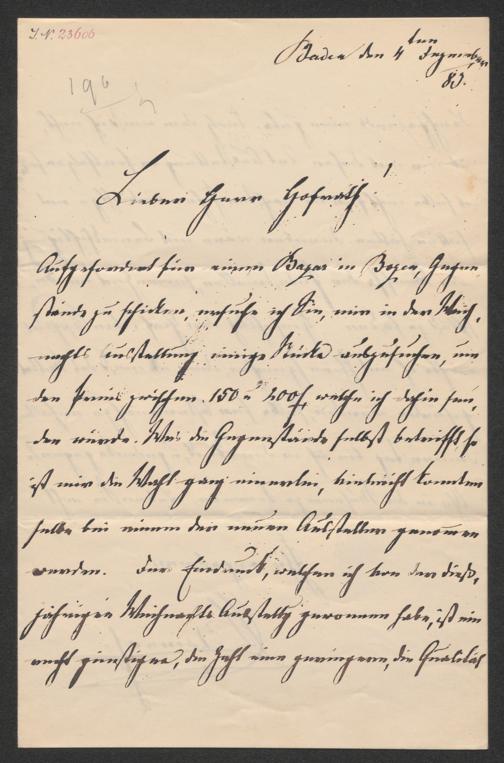 I. N. 23606
196
Baden den 4ten Dezember
83.
Lieber Herr Hofrath!
Aufgefordert für einen Bazar in Bozen, Gegen
stände zu schicken, ersuche ich Sie, mir in der Weih,
nachts Ausstellung einige Stücke auszusuchen, um
den Preis zwischen 150 u 200 f, welche ich dahin sen,
den würde. Was die Gegenstände selbst betrifft, so
ist mir die Wahl ganz einerlei, vielleicht könnten
selbe bei einem der neuen Aussteller genommen
werden. Der Eindruck, welchen ich von der dieß,
jährigen Weihnachts Ausstellg gewonnen habe, ist ein
recht günstiger, die Zahl eine geringere, die Qualität